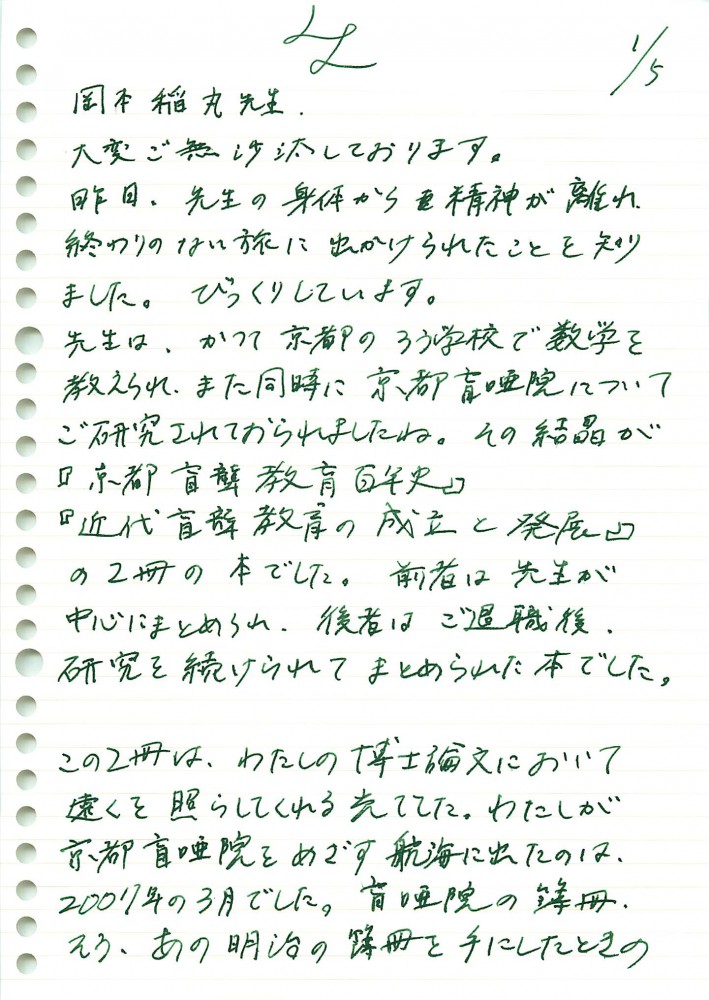 1/5
岡本稲丸先生.
大変ご無沙汰しております。
昨日、先生の身体から精神が離れ、
終わりのない旅に出かけられたことを知り
ました。びっくりしています。
先生は、かつて京都のろう学校で数学を
教えられ、また同時に京都盲唖院について
ご研究されておられましたね。その結晶が
『京都盲聾教育百年史』
『近代盲聾教育の成立と発展』
の2冊の本でした。前者は先生が
中心にまとめられ、後者はご退職後、
研究を続けられてまとめられた本でした。
この2冊は、わたしの博士論文において
遠くを照らしてくれる光でした。わたしが
京都盲唖院をめざす航海に出たのは、
2007年の3月でした。盲唖院の簿冊、
そう、あの明治の簿冊を手にしたときの